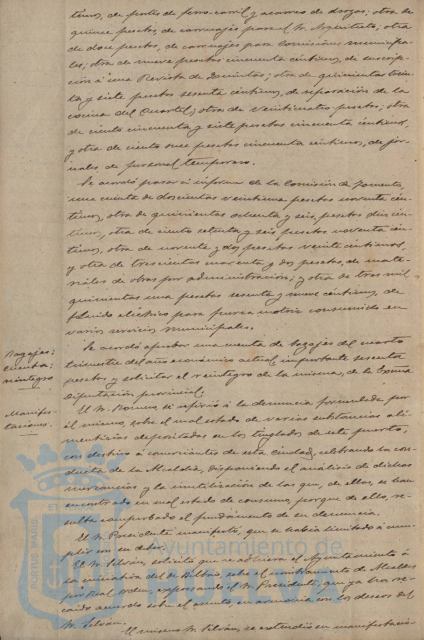 timos, de portes de ferro-carril y acarreo de drogas; otra de
quince pesetas, de carruajes para el Sr. Arquitecto, otra
de doce pesetas, de carruajes para Comisiones municipa-
les; otra de nueve pesetas cincuenta céntimos, de suscrip-
ción á una Revista de Quintas; otra de quinientas
ta y siete pesetas sesenta céntimos, de reparación de la
cocina del Cuartel; otra de veinticuatro pesetas; otra
de ciento cincuenta y siete pesetas cincuenta céntimos,
y otra de ciento once pesetas cincuenta céntimos, de jor-
nales de personal temporero.
Se acordó pasar á informe de la Comisión de Fomento,
una cuenta de doscientas veintiuna pesetas noventa cén-
timos, otra de quinientas ochenta y seis pesetas diez cén-
timos, otra de ciento setenta y seis pesetas noventa cén-
timos, otra de noventa y dos pesetas veinte céntimos,
y otra de trescientas cuarenta y dos pesetas, de mate-
riales de obras por administración; y otra de tres mil
quinientas una pesetas sesenta y nueve céntimos, de
fluido eléctrico para fuerza motriz consumido en
varios servicios municipales.
Bagajes;
cuenta;
reintegro
Se acordó aprobar una cuenta de bagajes del cuarto
trimestre del año económico actual, importante sesenta
pesetas y solicitar el reintegro de la misma, de la Excma
Diputación provincial.
Manifes-
taciones.
El Sr. se refirió á la denuncia formulada por
él mismo, sobre el mal estado de varias substancias ali-
menticias depositadas en los tinglados de este puerto,
con destino á comerciantes de esta ciudad, celebrando la con-
ducta de la Alcaldía, disponiendo el análisis de dichas
mercancías y la inutilización de las que, de ellas, se han
encontrado en mal estado de consumo, porque de ello, re-
sulta comprobado el fundamento de su denuncia.
El Sr. Presidente manifestó, que se había limitado á cum-
plir con su deber.
El Sr. Silván, solicitó que se adhiera el Ayuntamiento á
la iniciativa del de Bilbao, sobre el nombramiento de Alcaldes
por Real orden, expresando el Sr. Presidente, que ya
caído acuerdo sobre el asunto, en armonía con los deseos del
Sr. Silván.
El mismo Sr. Silván, se extendió en manifestacio
Ayuntamiento de
PORTUS MARIS ET